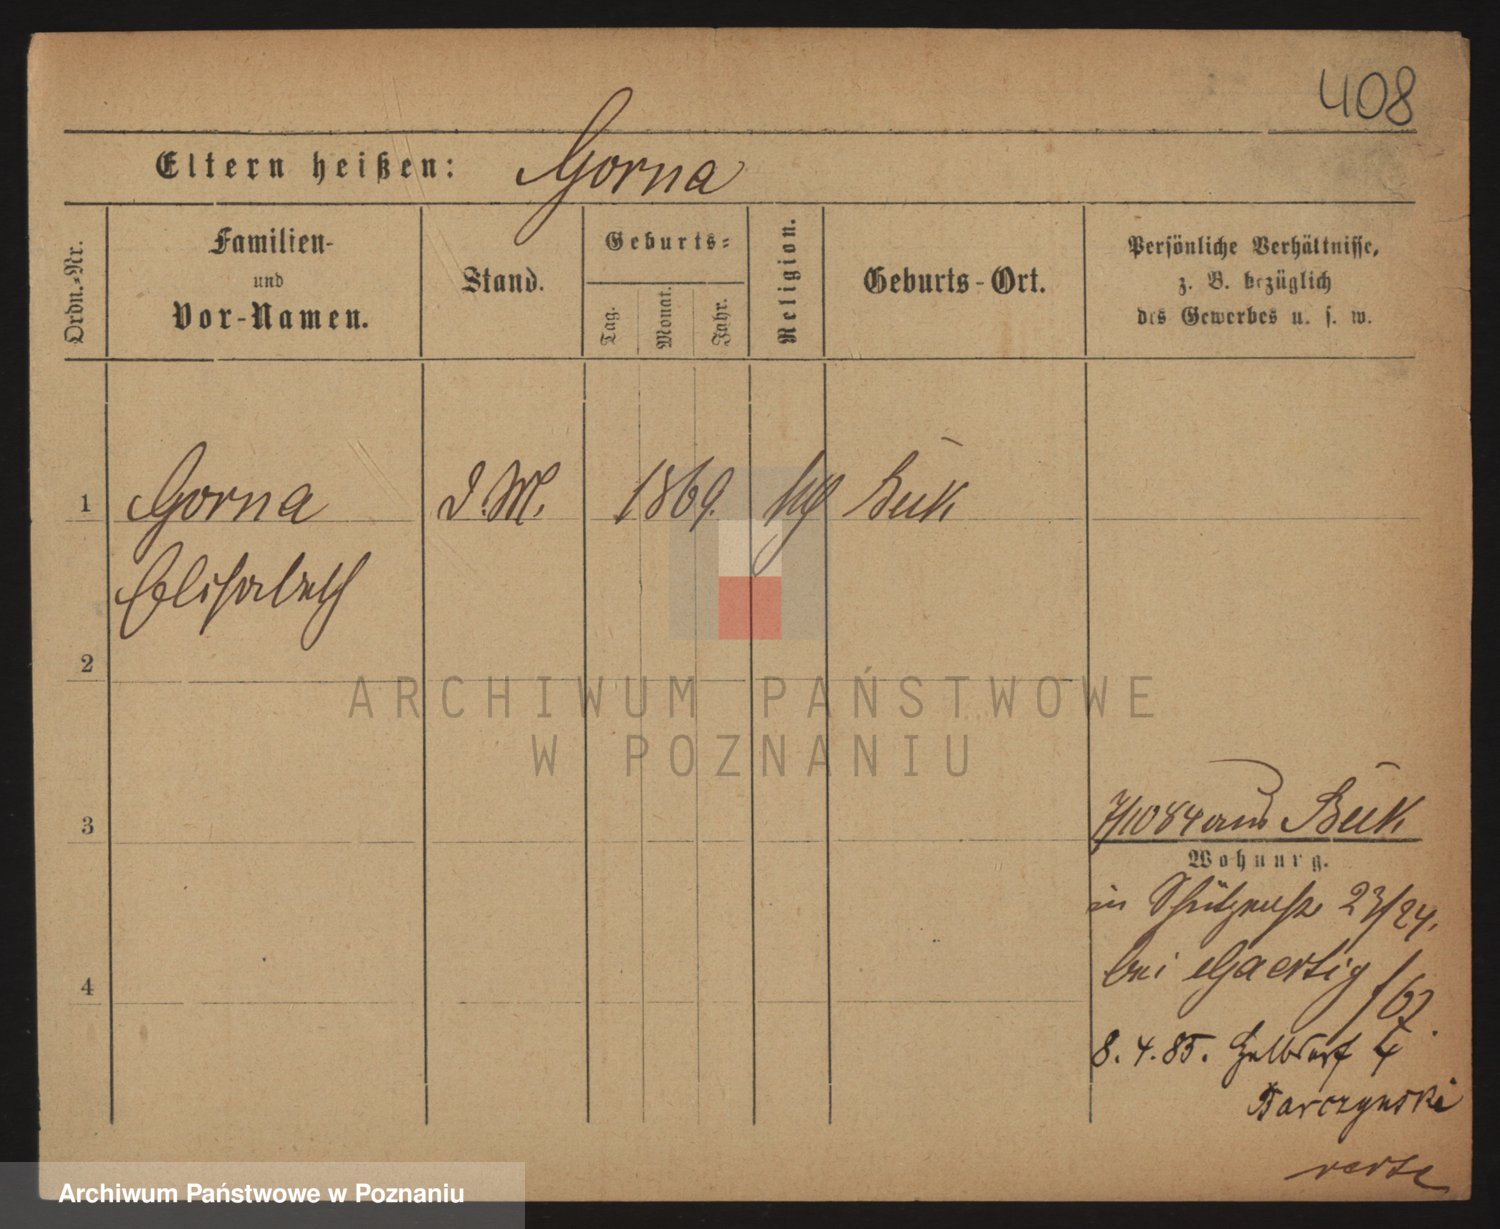 408
Eltern heißen: Gorna
Ordn.-Nr.
Familien-
und
Vor-Namen.
Stand.
Geburts-
Tag.
Monat.
Jahr.
Religion.
Geburts-Ort.
Persönliche Verhältnisse,
z. B. bezüglich
des Gewerbes u. s. w.
1 Gorna D.M. 1869. Buk
Elisabeth
2
ARCHIWUM PAŃSTWOWE
W POZNANIU
3
7/10 84 aus Buk
Wohnung.
in Schützenstr 23/24.
bei Gaertig
4
8. 4. 85. Halbdorf 4
Barczynski
verte
Archiwum Państwowe w Poznaniu